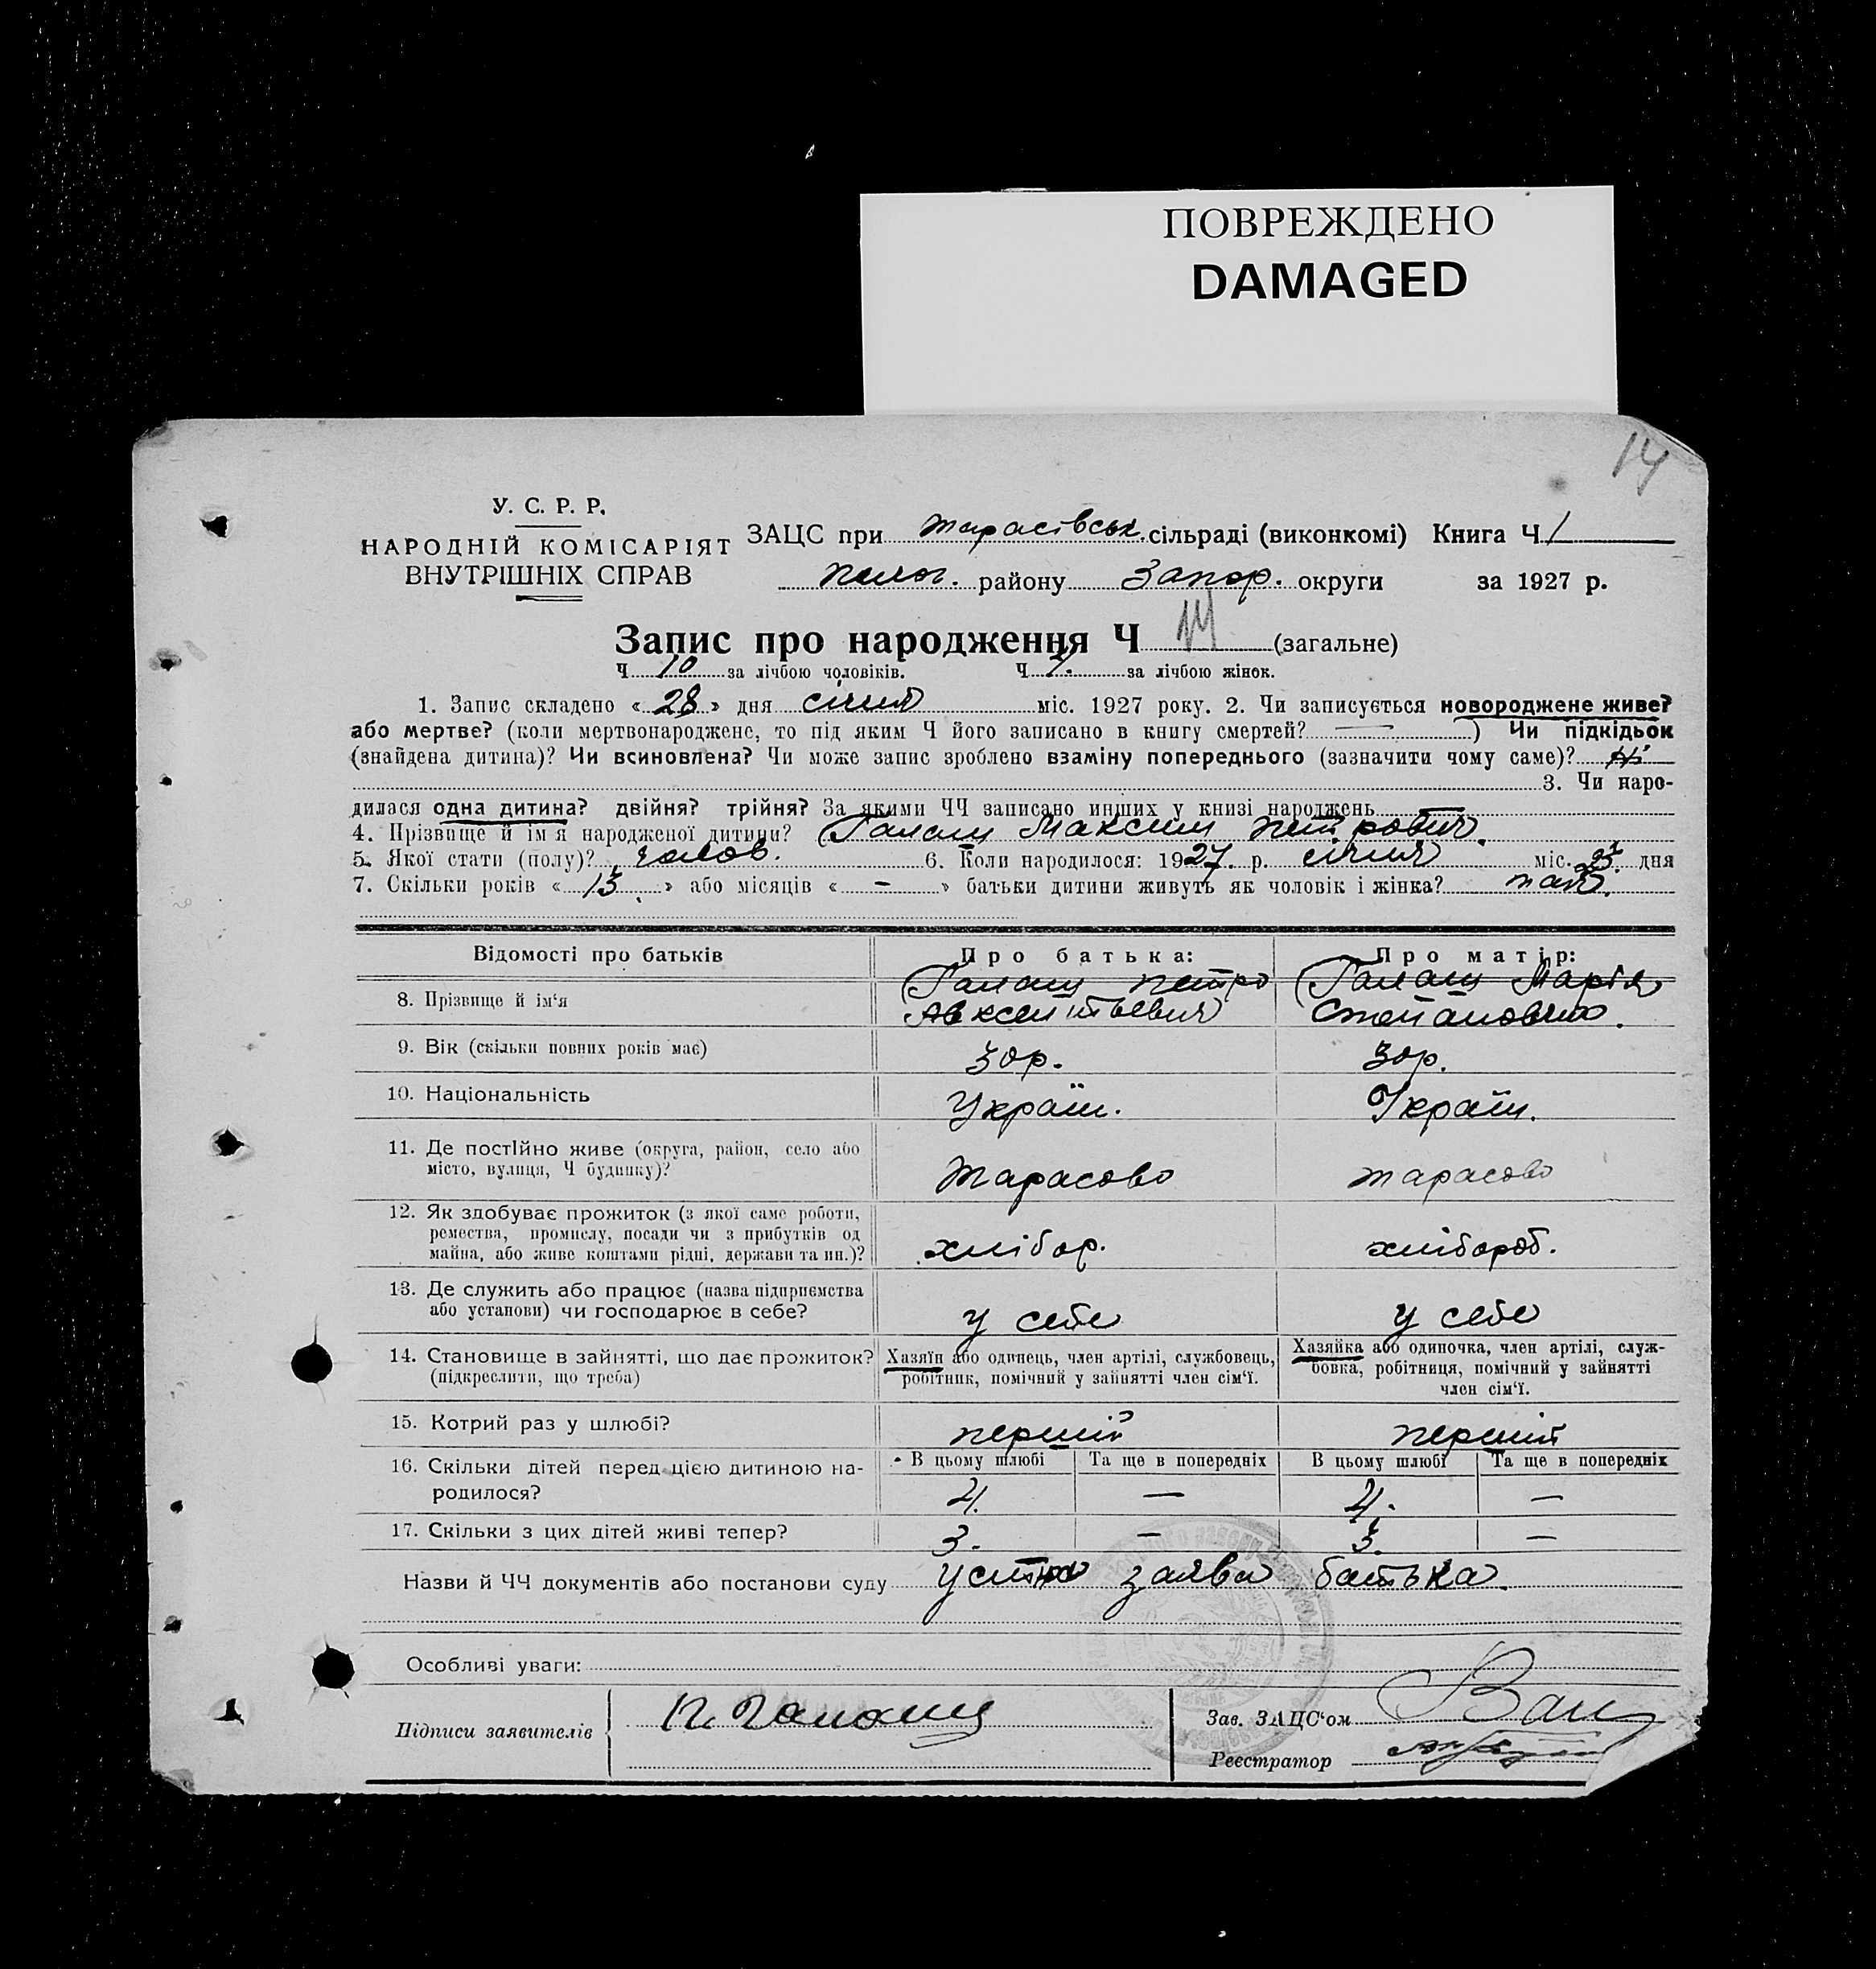 ПОВРЕЖДЕНО
DAMAGED
14
У. С. Р. Р.
НАРОДНІЙ КОМІСАРІЯТ
ВНУТРІШНІХ СПРАВ
ЗАЦС при Тарасівськ. сільраді (виконкомі) Книга Ч 1
Полог. району Запор. округи за 1927 р.
Запис про народження Ч 14 (загальне)
Ч 10 за лічбою чоловіків. Ч за лічбою жінок.
1. Запис складено « 28 » дня січня міс. 1927 року. 2. Чи записується новороджене живе?
або мертве? (коли мертвонароджене, то під яким Ч його записано в книгу смертей? — ) Чи підкідьок
(знайдена дитина)? Чи всиновлена? Чи може запис зроблено взаміну попереднього (зазначити чому саме)? Ні
3. Чи наро-
дилася одна дитина? двійня? трійня? За якими ЧЧ записано инших у книзі народжень —
4. Прізвище й ім'я народженої дитини? Галащ Максим Петрович.
5. Якої стати (полу)? чолов. 6. Коли народилося: 1927 р. січня міс. дня
7. Скільки років « 13 » або місяців « – » батьки дитини живуть як чоловік і жінка?
Відомості про батьків
Про батька:
Про матір:
8. Прізвище й ім'я
Галащ Петро
Авксентьевич
Галащ Марія
Степановна.
9. Вік (скільки повних років має)
30р.
30р.
10. Національність
Україн.
Україн.
11. Де постійно живе (округа, район, село або
місто, вулиця, Ч будинку)?
Тарасово
Тарасово
12. Як здобуває прожиток (з якої саме роботи,
ремества, промислу, посади чи з прибутків од
майна, або живе коштами рідні, держави та ин.)?
хлібор.
хлібороб.
13. Де служить або працює (назва підприємства
або установи) чи господарює в себе?
у себе
у себе
14. Становище в зайнятті, що дає прожиток?
(підкреслити, що треба)
Хазяїн або одинець, член артілі, службовець,
робітник, помічний у зайнятті член сім'ї.
Хазяйка або одиночка, член артілі, служ-
бовка, робітниця, помічний у зайнятті
член сім'ї.
15. Котрий раз у шлюбі?
перший
перший
16. Скільки дітей перед цією дитиною на-
родилося?
В цьому шлюбі
Та ще в попередніх
В цьому шлюбі
Та ще в попередніх
4. — 4. —
17. Скільки з цих дітей живі тепер?
3. — 3. —
Назви й ЧЧ документів або постанови суду устна заява батька.
Особливі уваги:
Підписи заявителів
П. Галащ
Зав. ЗАЦС'ом
Реєстратор